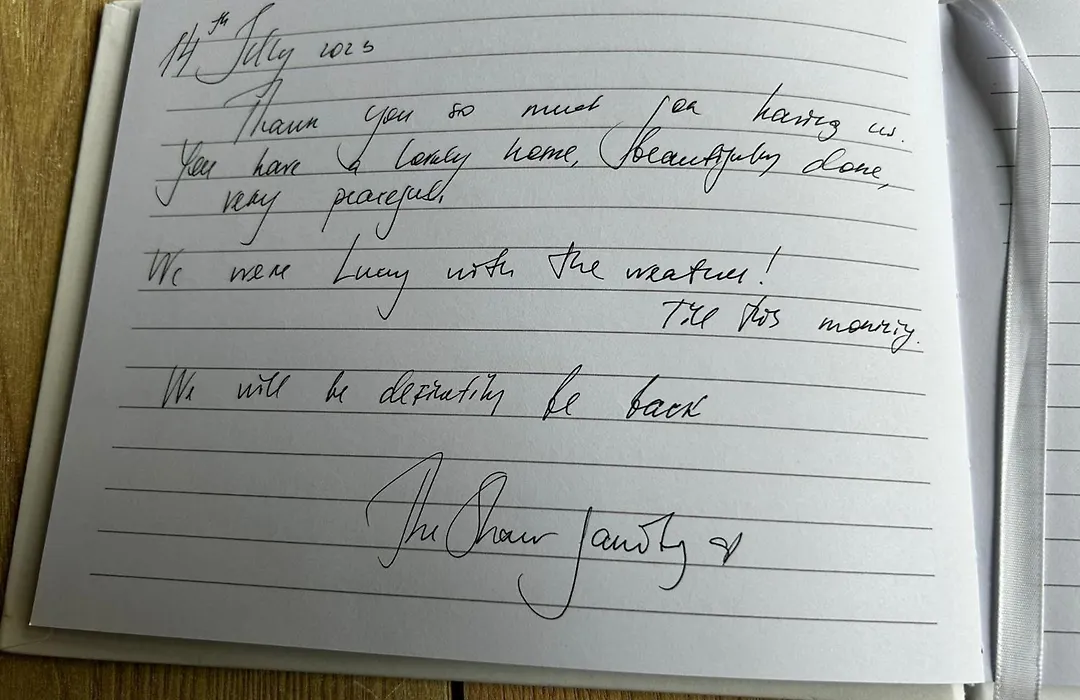 14th July 2023
Thank you so much for having us.
You have a lovely home, beautifully done,
very peaceful.
We were lucky with the weather!
Till this morning.
We will be definitily be back
The Shaw family ♡